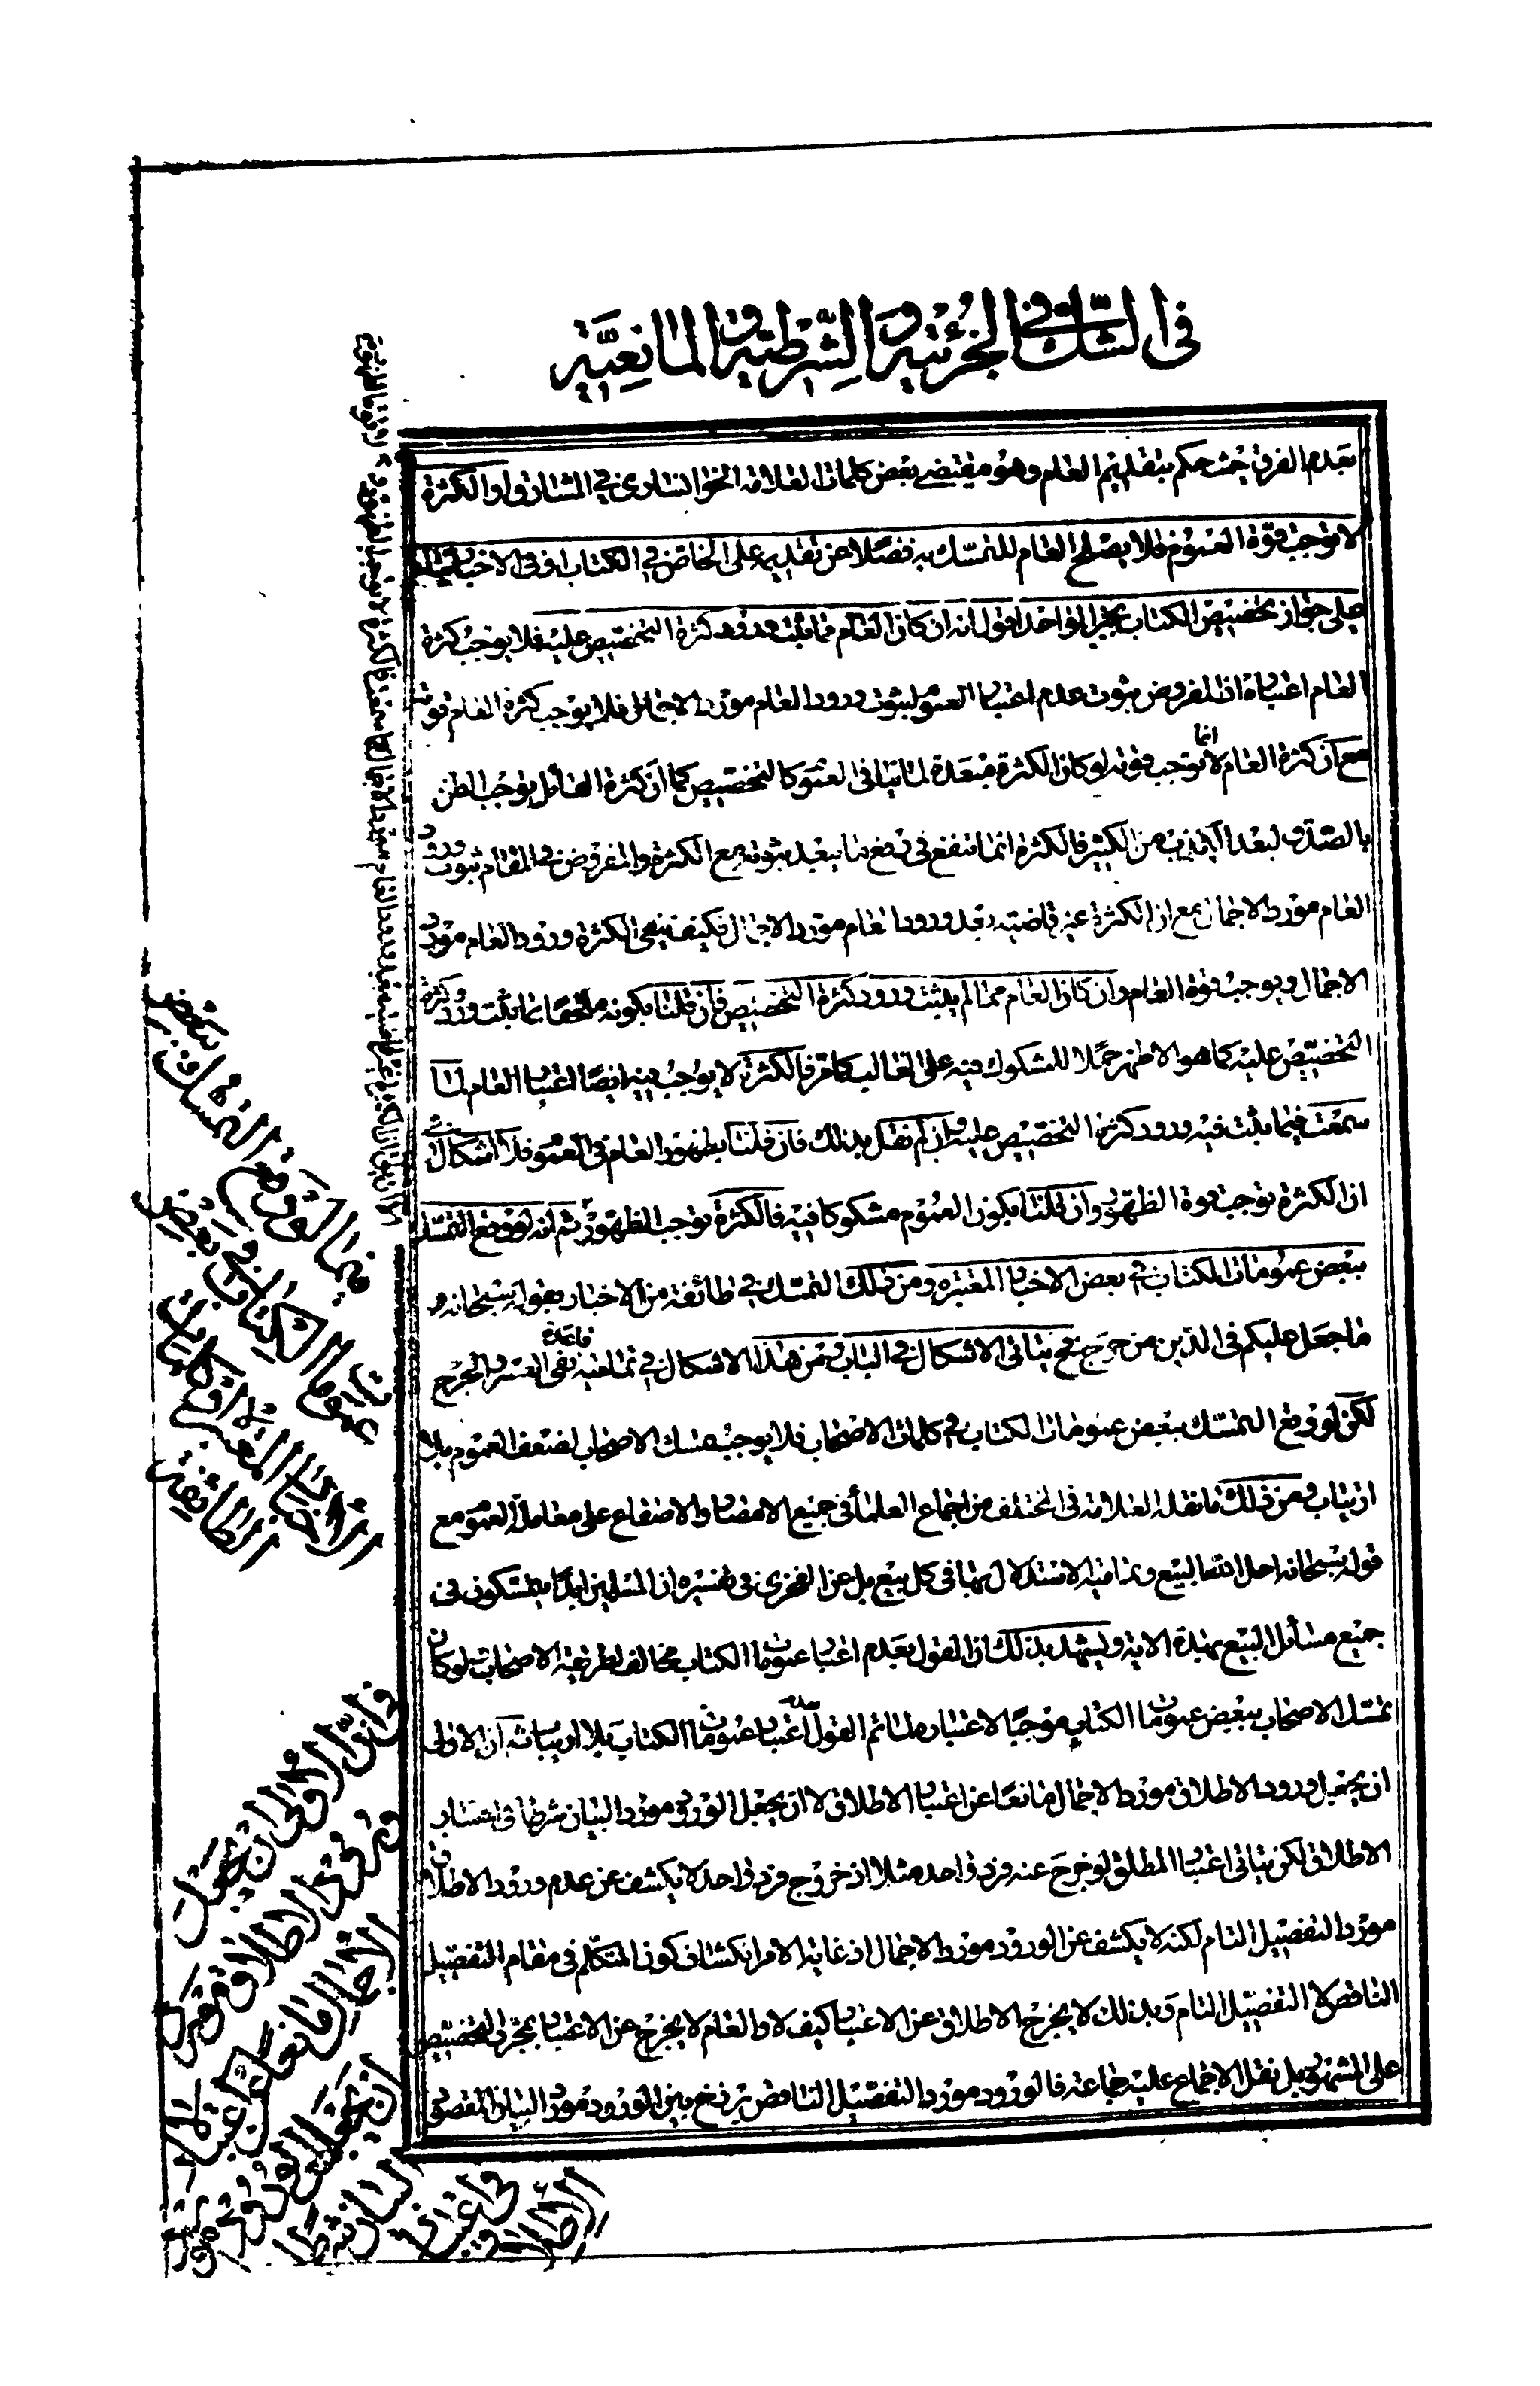 في الشك في الجزئية والشرطية والمانعية
بعدم الفرق حيث حكم بتقديم العام وهو مقتضى بعض كلمات العلامة الخوانساري في المشارق اذ الكثرة
لا توجب قوة العموم فلا يصلح العام للتمسك به فضلا عن تقديمه على الخاص في الكتاب او في الاخبار
على جواز تخصيص الكتاب بخبر الواحد اقول انه ان كان العام مما يثبت ورود كثرة التخصيص عليه فلا يوجب كثرة
العام اعتباره اذ المفروض ثبوت عدم اعتبار العموم لثبوت ورود العام مورد الاجمال فلا يوجب كثرة العام قوته
مع ان كثرة العام لا انما توجب قوته لو كان الكثرة مبعدة لما ينافي العموم كالتخصيص كما ان كثرة القائل يوجب الظن
بالصدق لبعد الكذب من الكثير فالكثرة انما تنفع في دفع ما يبعد ثبوته مع الكثرة والمفروض في المقام ثبوت ورود
العام مورد الاجمال مع ان الكثرة غير قاضية بعد ورود العام مورد الاجمال فكيف ينفي الكثرة ورود العام مورد
الاجمال ويوجب قوة العام وان كان العام مما لم يثبت ورود كثرة التخصيص فان قلنا بكونه ملحقا بما يثبت ورود كثرة
التخصيص عليه كما هو الاظهر حملا للمشكوك فيه على الغالب كما مر فالكثرة لا يوجب فيه ايضا اعتبار العام لما
سمعت فيما يثبت فيه ورود كثرة التخصيص عليه وان لم نقل بذلك فان قلنا بظهور العام في العموم فلا اشكال في
ان الكثرة توجب قوة الظهور وان قلنا بكون العموم مشكوكا فيه فالكثرة توجب الظهور ثم انه لو وقع التمسك
ببعض عمومات الكتاب في بعض الاخبار المعتبرة ومن ذلك التمسك في طائفة من الاخبار بقوله سبحانه و
ما جعل عليكم في الدين من حرج فح يتاتى الاشكال في الباب ومن هذا الاشكال في تمامية قاعدة نفي العسر والحرج
لكن لو وقع التمسك ببعض عمومات الكتاب في كلمات الاصحاب فلا يوجب تمسك الاصحاب لضعف العموم بلا
ارتياب ومن ذلك ما نقله العلامة في المختلف من اجماع العلماء في جميع الامصار والاصقاع على معاملة العموم مع
قوله سبحانه احل الله البيع وتمامية الاستدلال بها في كل بيع بل عن الفخري في تفسيره ان المسلمين ابدا يتمسكون في
جميع مسائل البيع بهذه الاية ويشهد بذلك ان القول بعدم اعتبار عمومات الكتاب مخالف لطريقة الاصحاب لو كان
تمسك الاصحاب ببعض عمومات الكتاب موجبا لاعتباره لما تم القول اعتبار عمومات الكتاب بلا ارتياب ثم ان الاولى
ان يجعل ورود الاطلاق مورد الاجمال مانعا عن اعتبار الاطلاق لا ان يجعل الورود مورد البيان شرطا في اعتبار
الاطلاق لكن يتاتى اعتبار المطلق لو خرج عنه فرد واحد مثلا اذ خروج فرد واحد لا يكشف عن عدم ورود الاطلاق
مورد التفصيل التام لكنه لا يكشف عن الورود مورد الاجمال اذ غاية الامر انكشاف كون المتكلم في مقام التفصيل
الناقص لا التفصيل التام وبذلك لا يخرج الاطلاق عن الاعتبار كيف لا والعام لا يخرج عن الاعتبار بمجرد التخصيص
على المشهور بل نقل الاجماع عليه جماعة فالورود مورد التفصيل الناقص برزخ بين الورود مورد البيان المقصود
فيما لو وقع التمسك ببعض
عموم الكتاب في بعض
الاخبار المعتبرة
في ان الاولى ان يجعل
ورود الاطلاق مورد
الاجمال مانعا عن اعتباره لا
ان يجعل الورود مورد
البيان شرطا
في اعتبار
الاطلاق